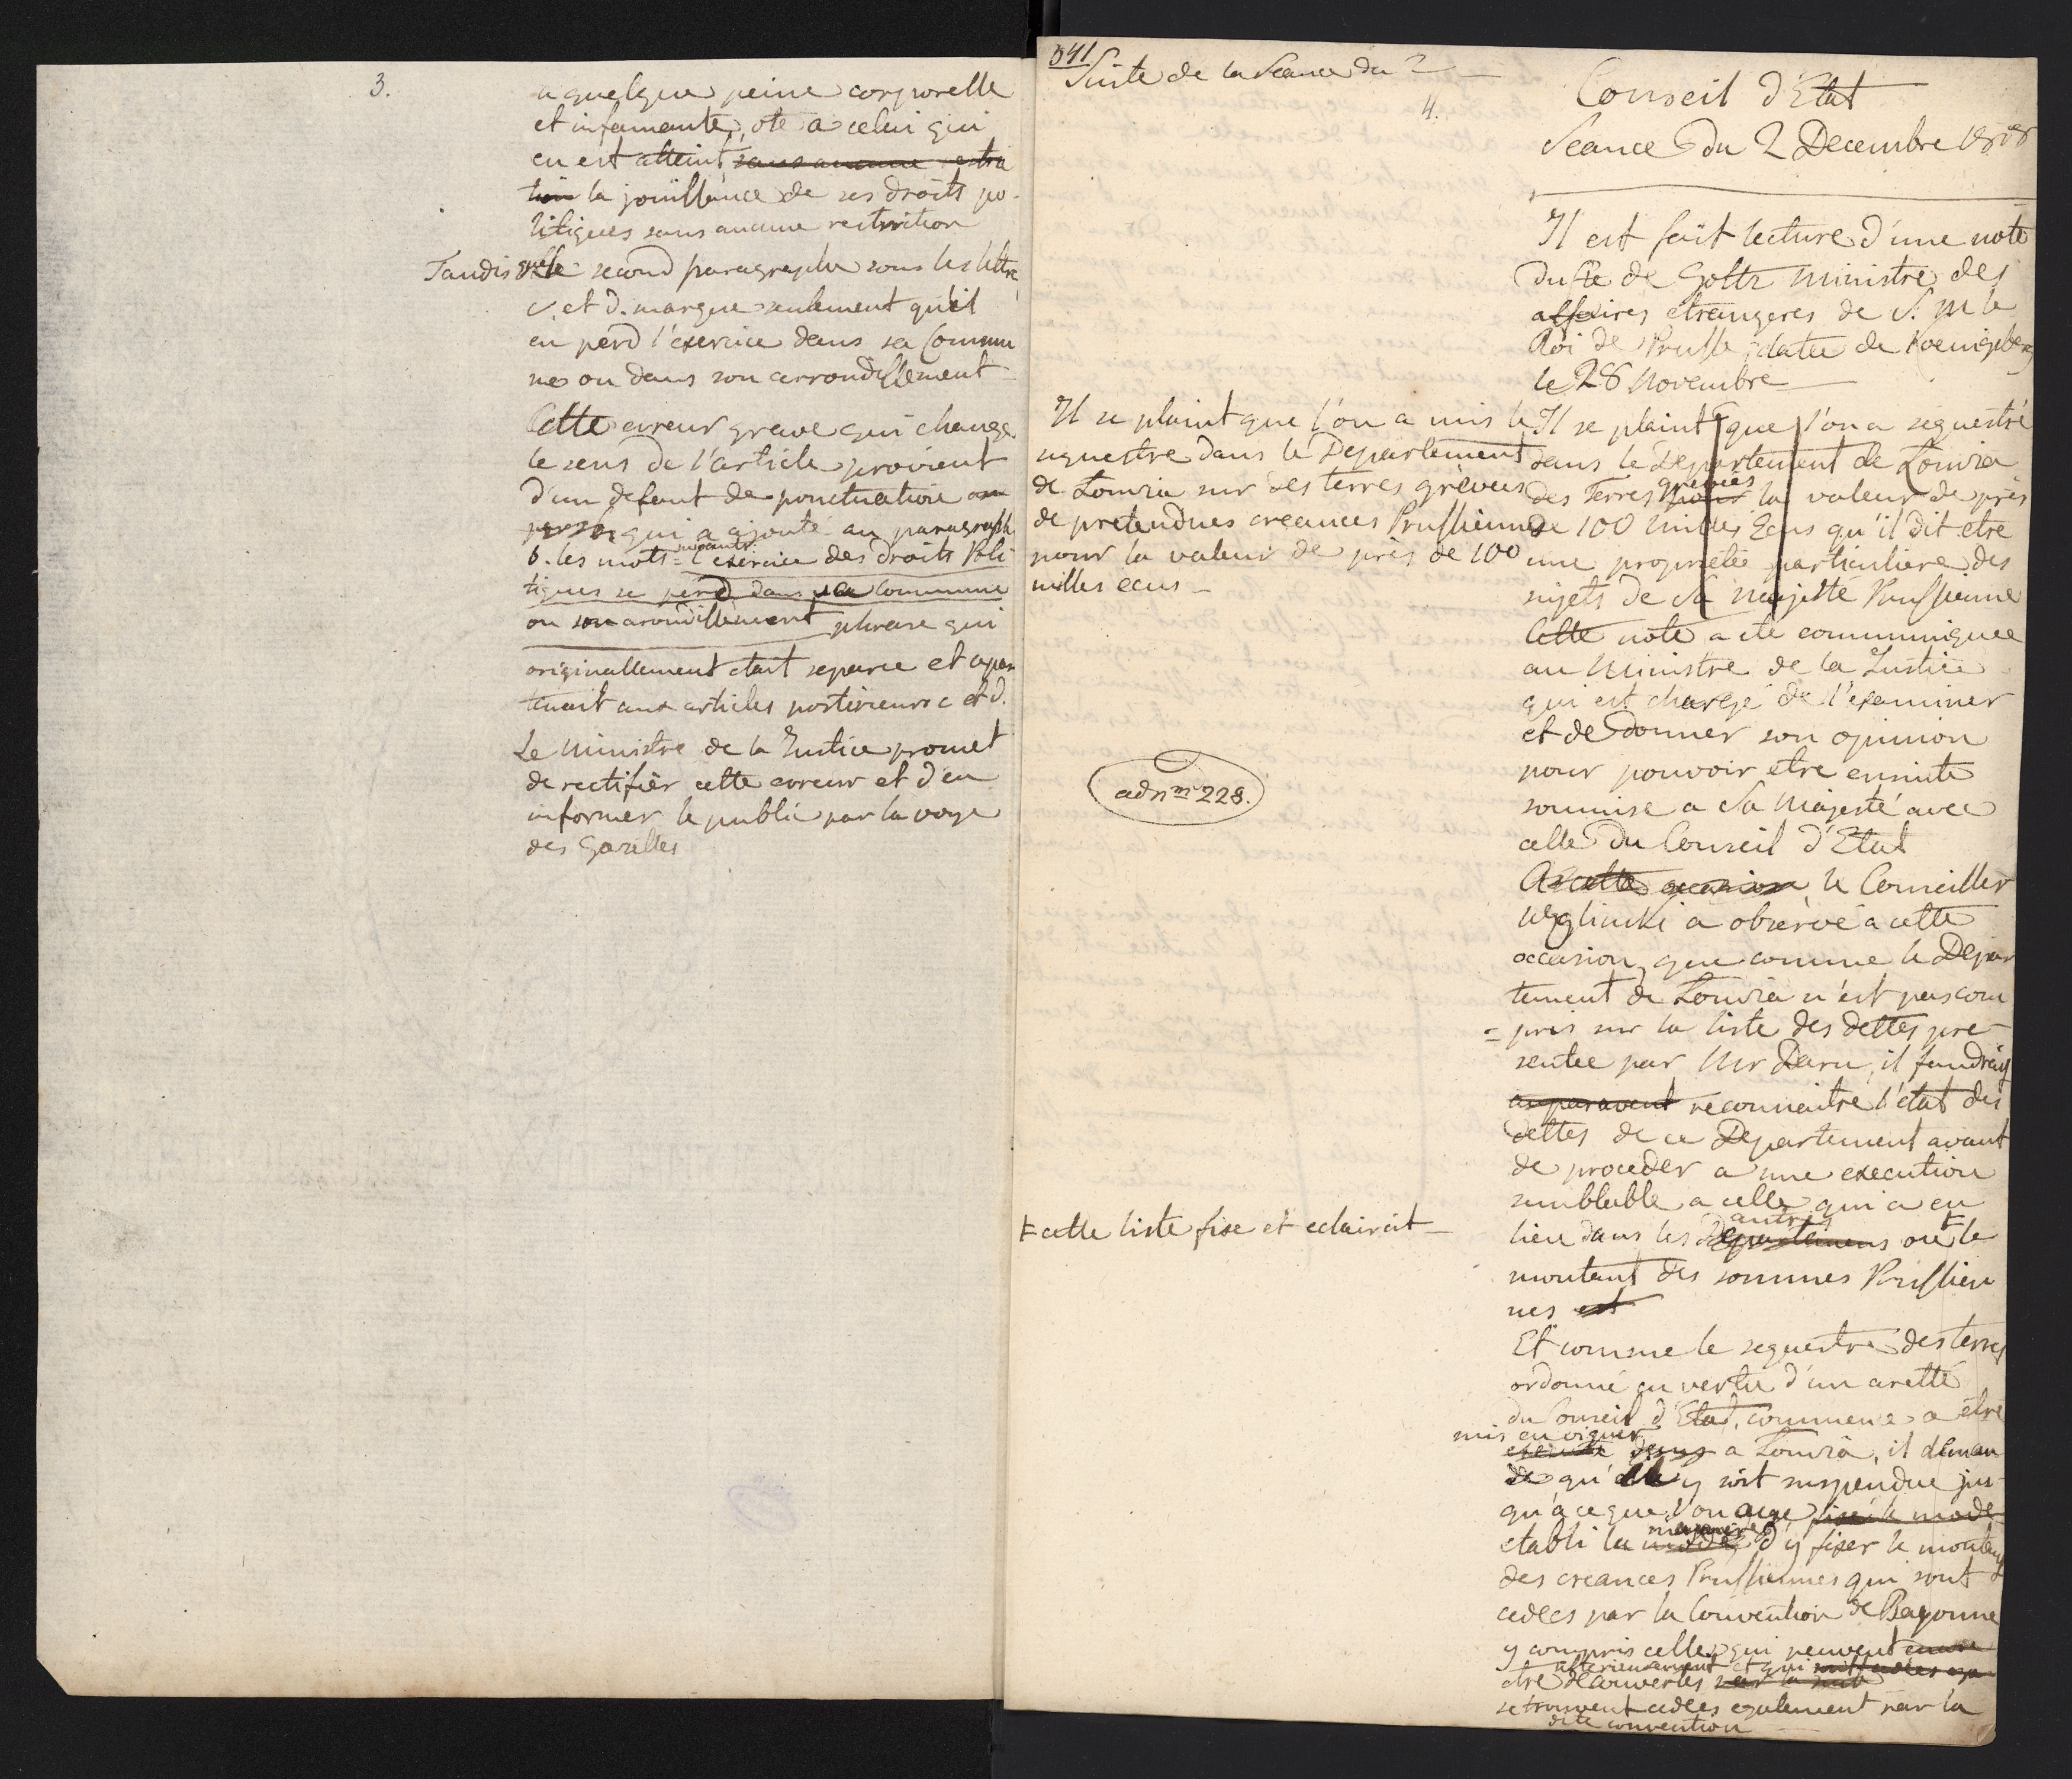 3.
a quelque peine corporelle
et infamante, ote a celui qui
en est atteint, sans aucune restric
tion la jouissance de ses droits po-
litiques sans aucune restriction
Tandis que le second paragraphe sous les lettre
c. et d. marque seulement qu'il
en perd l'exercice dans sa Commu
ne ou dans son arrondissement
Cette erreur grave qui change
le sens de l'article provient
d'un defaut de ponctuation
qui a ajouté au paragraph
b. les mots suivants = l'exercice des droits Poli
tiques se perd dans sa commune
ou son arondissement phrase qui
originallement etait separée et apar
tenait aux articles posterieurs c et d.
Le Ministre de la Justice promet
de rectifier cette erreur et d'en
informer le public par la voye
des Gazettes
341
Suite de la Seance du 2
4.
Conseil d'Etat
Seance du 2 Decembre 1808
Il est fait lecture d'une note
du Cte de Goltz Ministre des
affaires etrangeres de S. M le
Roi de Prusse, datée de Koenigsberg
le 28 Novembre
Il se plaint que l'on a mis le
sequestre dans le Departement
de Lomza sur des terres grévées
de pretendues creances Prussiennes
pour la valeur de près de 100
milles ecus
Il se plaint que l'on a sequestré
dans le Departement de Lomza
des Terres grévées pour la valeur de près
de 100 milles Ecus qu'il dit etre
une propriété particuliere des
sujets de Sa Majesté Prussienne
Cette note a eté communiquée
au Ministre de la Justice
qui est chargé de l'examiner
et de donner son opinion
pour pouvoir etre ensuite
soumise a Sa Majesté avec
celle du Conseil d'Etat
ad n m 228.
A cette occasion le Conseiller
Węgliński a observé a cette
occasion, que comme le Depar
tement de Lomza n'est pas com
= pris sur la liste des dettes pre-
sentée par Mr Daru, il faudrait
auparavant reconnaitre l'état des
dettes de ce Departement avant
de proceder a une execution
semblable a celle qui a eu
lieu dans les autres Departemens ou ⱡ le
ⱡ cette liste fixe et eclaircit
montant des sommes Prussien
nes est
Et comme le sequestre des terres
ordonné en vertu d'un aretté
du Conseil d'Etat, commence a être
mis en viguer a Lomza, il deman
de qu'elle y soit suspendue jus-
qu'a ce que l'on aye fixé le mode
etabli la mode maniere d'y fixer le montant
des creances Prussiennes qui sont
cedées par la Convention de Bayonne
y compris celles qui peuvent encore
etre decouvertes ulterieurement et qui
se trouvent cedées egalement par la
dite convention